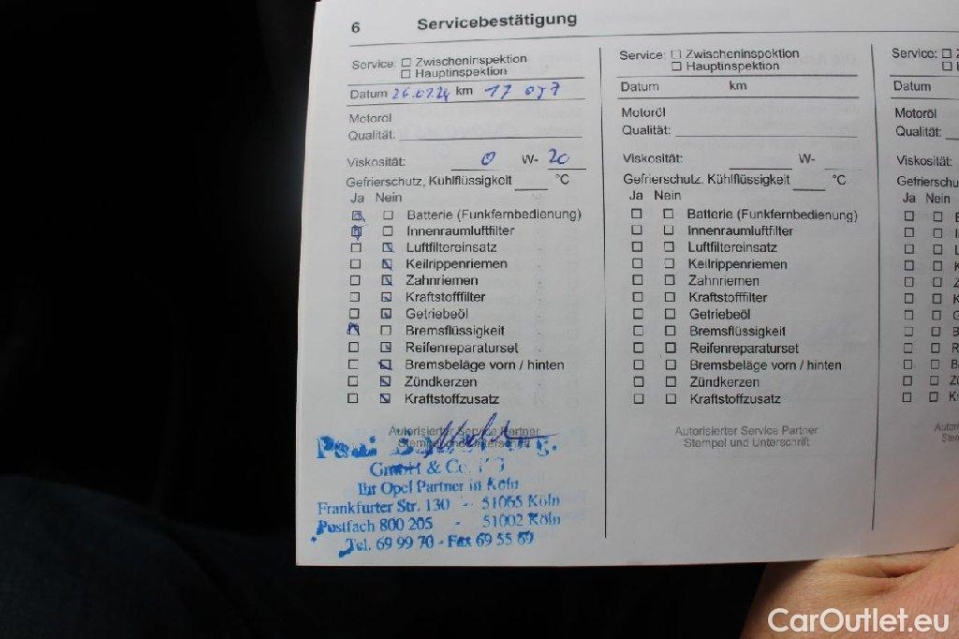 6 Servicebestätigung
Service: ☐ Zwischeninspektion
☐ Hauptinspektion
Datum 26.01.24 km 17 077
Motoröl
Qualität:
Viskosität: 0 W- 20
Gefrierschutz, Kühlflüssigkeit °C
Ja Nein
Batterie (Funkfernbedienung)
Innenraumluftfilter
Luftfiltereinsatz
Keilrippenriemen
Zahnriemen
Kraftstofffilter
Getriebeöl
Bremsflüssigkeit
Reifenreparaturset
Bremsbeläge vorn / hinten
Zündkerzen
Kraftstoffzusatz
Autorisierter Service Partner
Stempel und Unterschrift
GmbH & Co.
Ihr Opel Partner in Köln
Frankfurter Str. 130 - 51065 Köln
Postfach 800 205 - 51002 Köln
Tel. 69 99 70 - Fax 69 55 69
Service: ☐ Zwischeninspektion
☐ Hauptinspektion
Datum km
Motoröl
Qualität:
Viskosität: W-
Gefrierschutz, Kühlflüssigkeit °C
Ja Nein
Batterie (Funkfernbedienung)
Innenraumluftfilter
Luftfiltereinsatz
Keilrippenriemen
Zahnriemen
Kraftstofffilter
Getriebeöl
Bremsflüssigkeit
Reifenreparaturset
Bremsbeläge vorn / hinten
Zündkerzen
Kraftstoffzusatz
Autorisierter Service Partner
Stempel und Unterschrift
Service: ☐
Datum
Motoröl
Qualität:
Viskosität:
Gefrierschu
Ja Nein
CarOutlet.eu